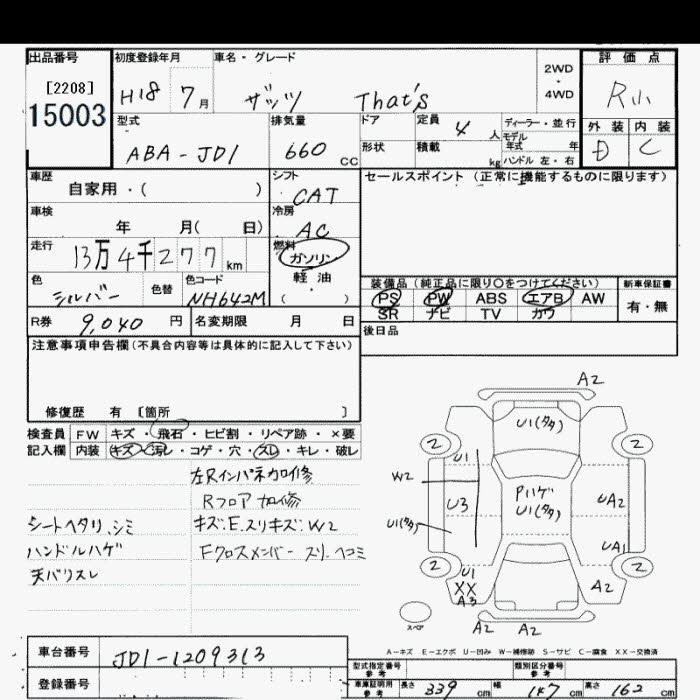 出品番号 初度登録年月 車名・グレード 評価点
[2208] 2WD・4WD
15003 H18 7月 ザッツ That's R小
型式 排気量 ドア 定員 4人 ディーラー・並行 外装 内装
ABA-JD1 660cc 形状 積載 kg モデル年式 年 ハンドル 左・右 D C
車歴 自家用・( ) シフト CAT セールスポイント (正常に機能するものに限ります)
車検 年 月( 日) 冷房 AC
走行 13万4千277km 燃料 ガソリン 軽油・( )
色 シルバー 色替 色コード NH642M 装備品(純正品に限り○をつけてください) 新車保証書
PS PW ABS エアB AW 有・無
SR ナビ TV カワ
R券 9,040円 名変期限 月 日 後日品
注意事項申告欄(不具合内容等は具体的に記入して下さい)
修復歴 有 〔箇所 〕
検査員 FW キズ・飛石・ヒビ割・リペア跡・×要
記入欄 内装 キズ・汚レ・コゲ・穴・スレ・キレ・破レ
左Rインパネ加修
Rフロア加修
シートヘタリ、シミ キズ.E.スリキズ.W2
ハンドルハゲ Fクロスメンバー スリ.ヘコミ
天バリスレ
A2
U1(タタ)
2 2
U1
W2
U3 Pハゲ UA2
U1(タタ) U1(タタ)
UA1
2 U1 2
XX A2
A3
スペア A2 A2
A-キズ E-エクボ U-凹み W-補修跡 S-サビ C-腐食 XX-交換済
車台番号 JD1-1209313
型式指定番号 参考 類別区分番号 参考
登録番号 車庫証明用 参考 長さ 339cm 幅 147cm 高さ 162cm